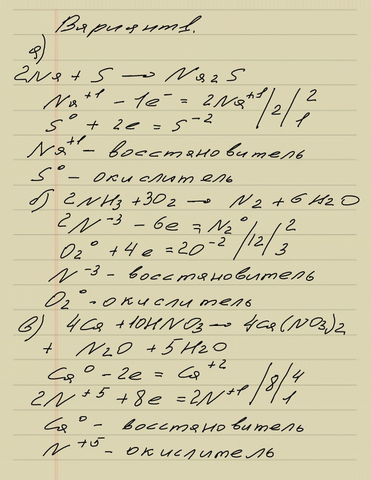 Вариант 1.
а)
2Na + S → Na2S
Na⁺¹ - 1e⁻ = 2Na⁺¹ /2/ 2
S⁰ + 2e = S⁻² 1
Na⁺¹ - восстановитель
S⁰ - окислитель
б) 2NH3 + 3O2 → N2 + 6H2O
2N⁻³ - 6e = N2⁰ /12/ 2
O2⁰ + 4e = 2O⁻² 3
N⁻³ - восстановитель
O2⁰ - окислитель
в) 4Ca + 10HNO3 → 4Ca(NO3)2
+ N2O + 5H2O
Ca⁰ - 2e = Ca⁺² /8/ 4
2N⁺⁵ + 8e = 2N⁺¹ 1
Ca⁰ - восстановитель
N⁺⁵ - окислитель